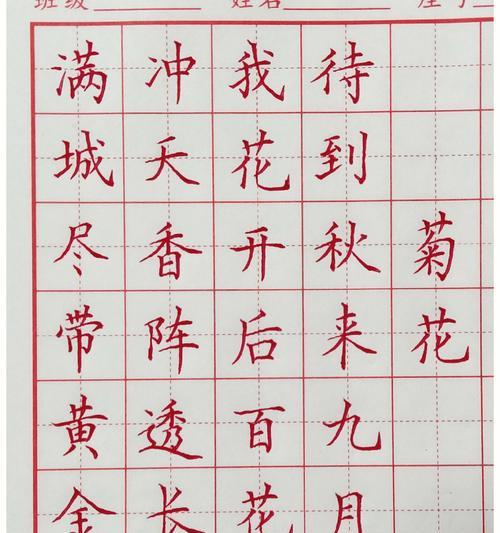 班级
姓名
菊花
待到秋来九月
我花开后百花
冲天香阵透长
满城尽带黄金